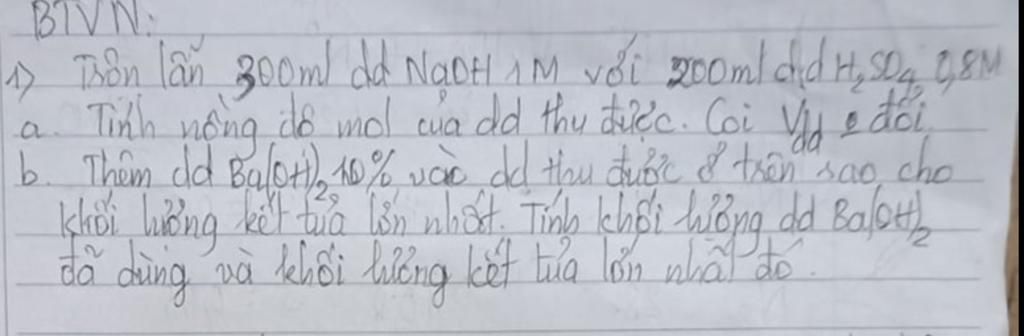 BTVN:
1) Trộn lẫn 300ml dd NaOH 1M với 200ml dd H₂SO₄ 0,8M
a. Tính nồng độ mol của dd thu được. Coi Vdd k đổi.
b. Thêm dd Ba(OH)₂ 10% vào dd thu được ở trên sao cho
khối lượng kết tủa lớn nhất. Tính khối lượng dd Ba(OH)₂
đã dùng và khối lượng kết tủa lớn nhất đó.